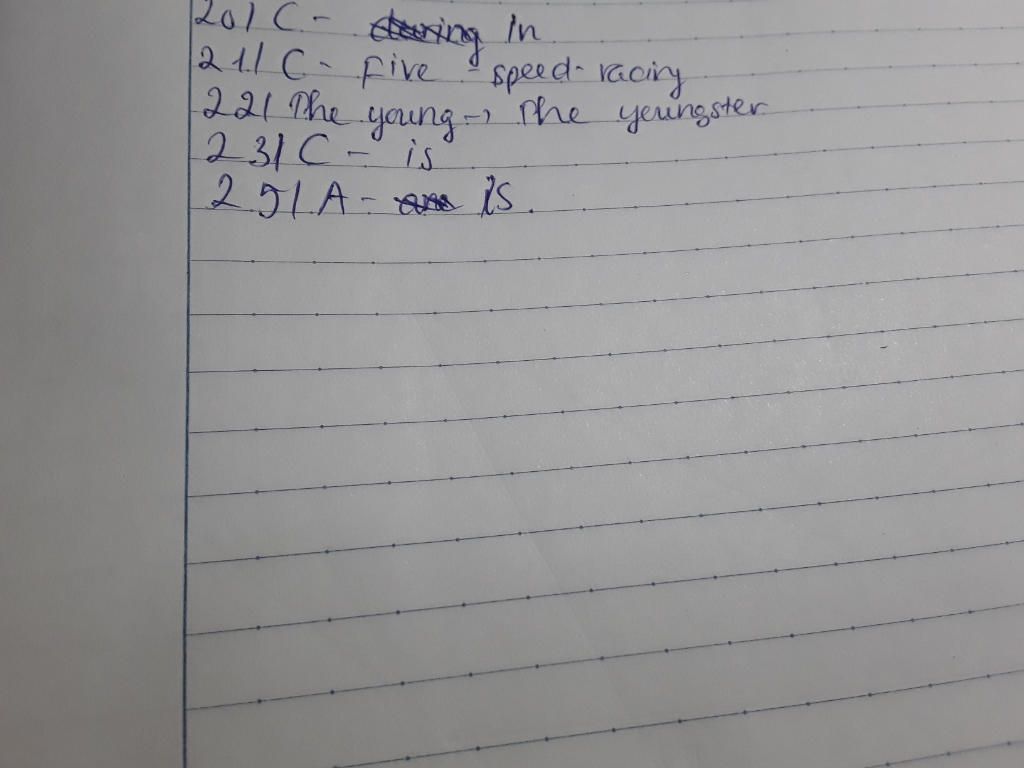 20/ C - during In
21/ C - Five - speed - racing
22/ The young -> The youngster
23/ C - is
25/ A - are is.